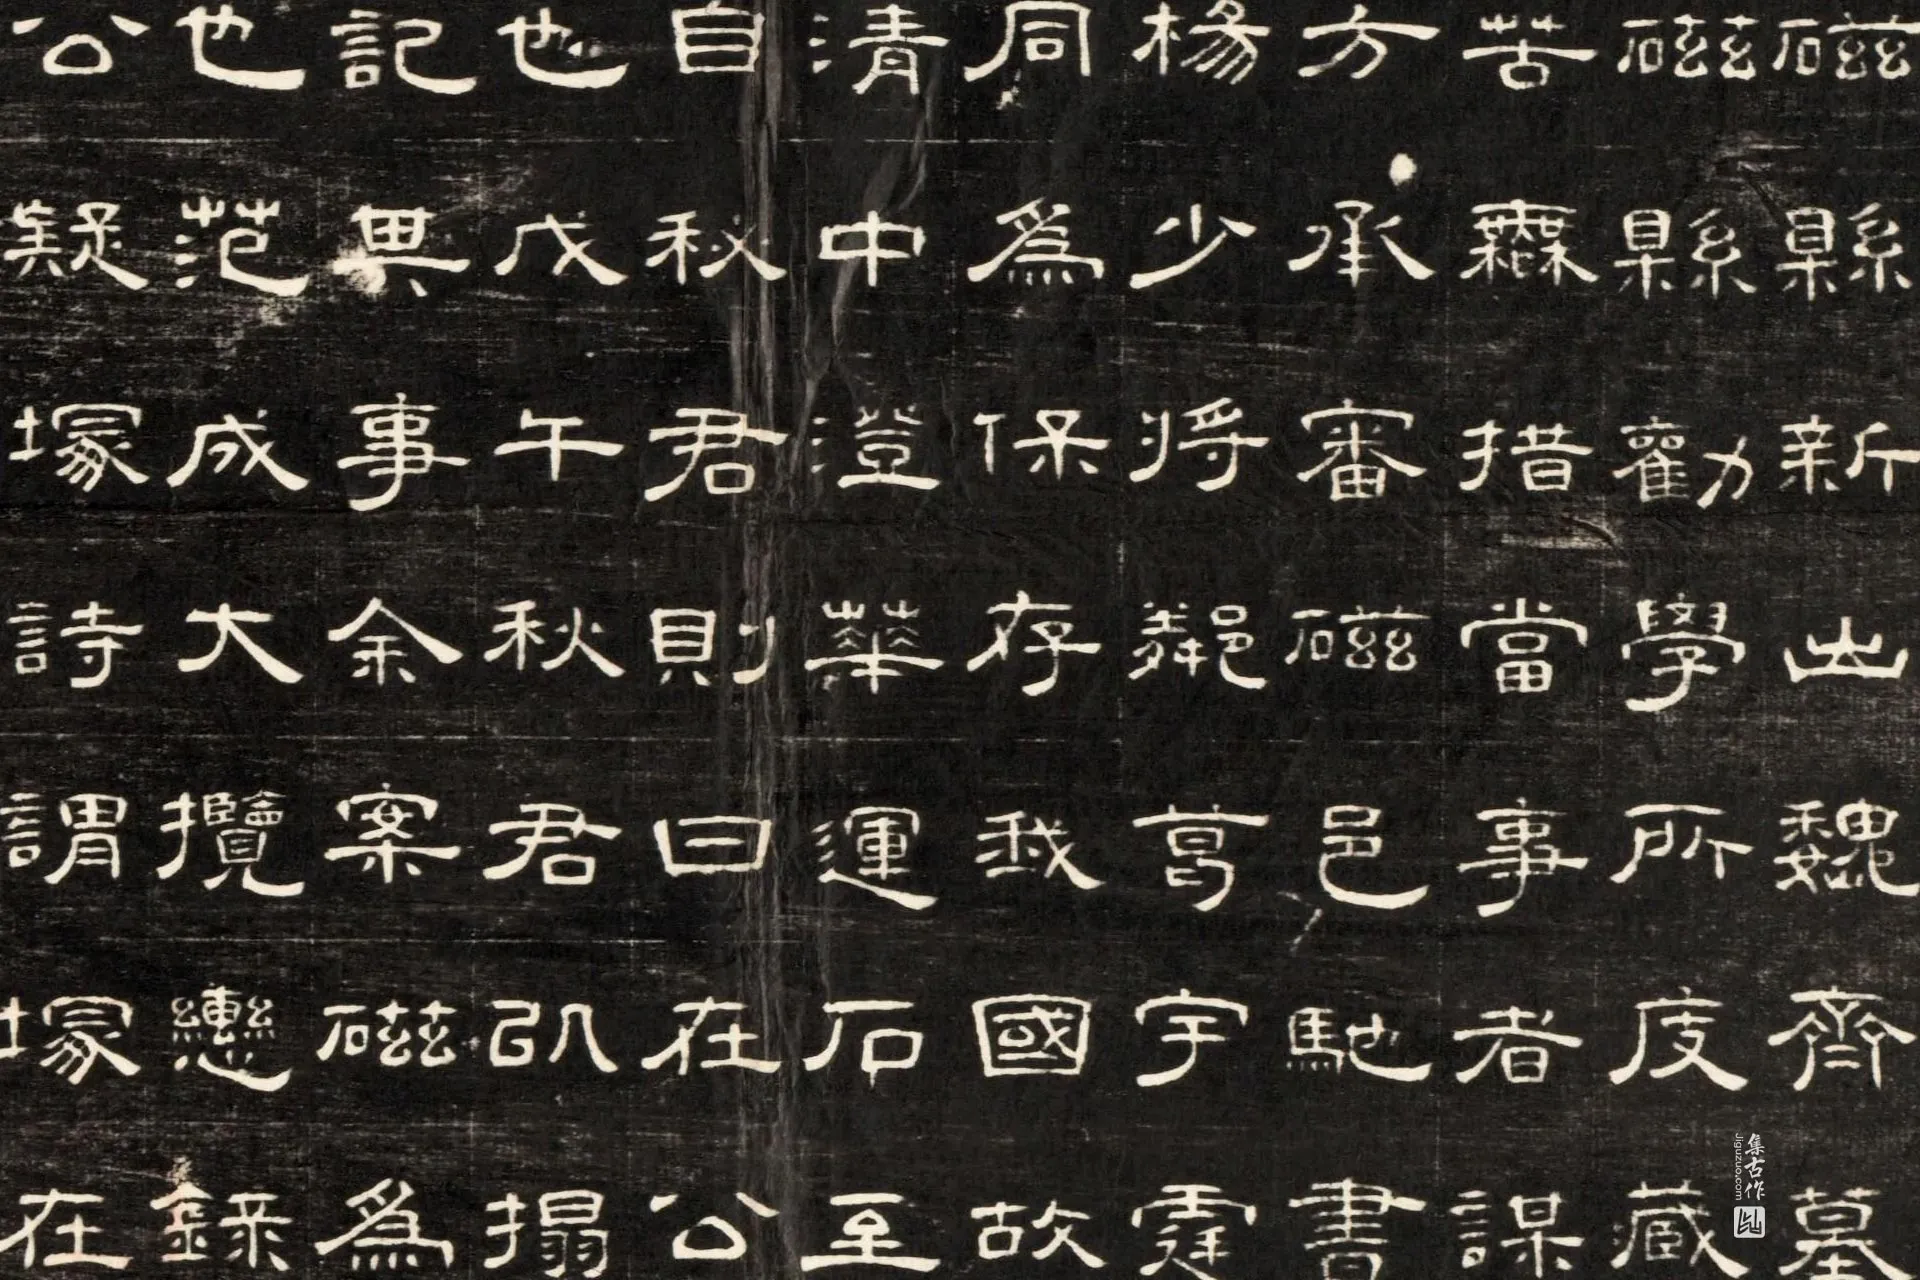 磁縣新出魏齊墓
磁縣勸學所庋藏
苦無措當事者謀
方承審磁邑馳書
楊少將鄰葛宇霆
同為保存我國故
清中澄華運石至
自秋君則曰在公
也戊午秋君訊搨
記其事余案磁為
也范成大攬轡錄
公疑冢詩謂冢在
集古作
Jiguzuo.com